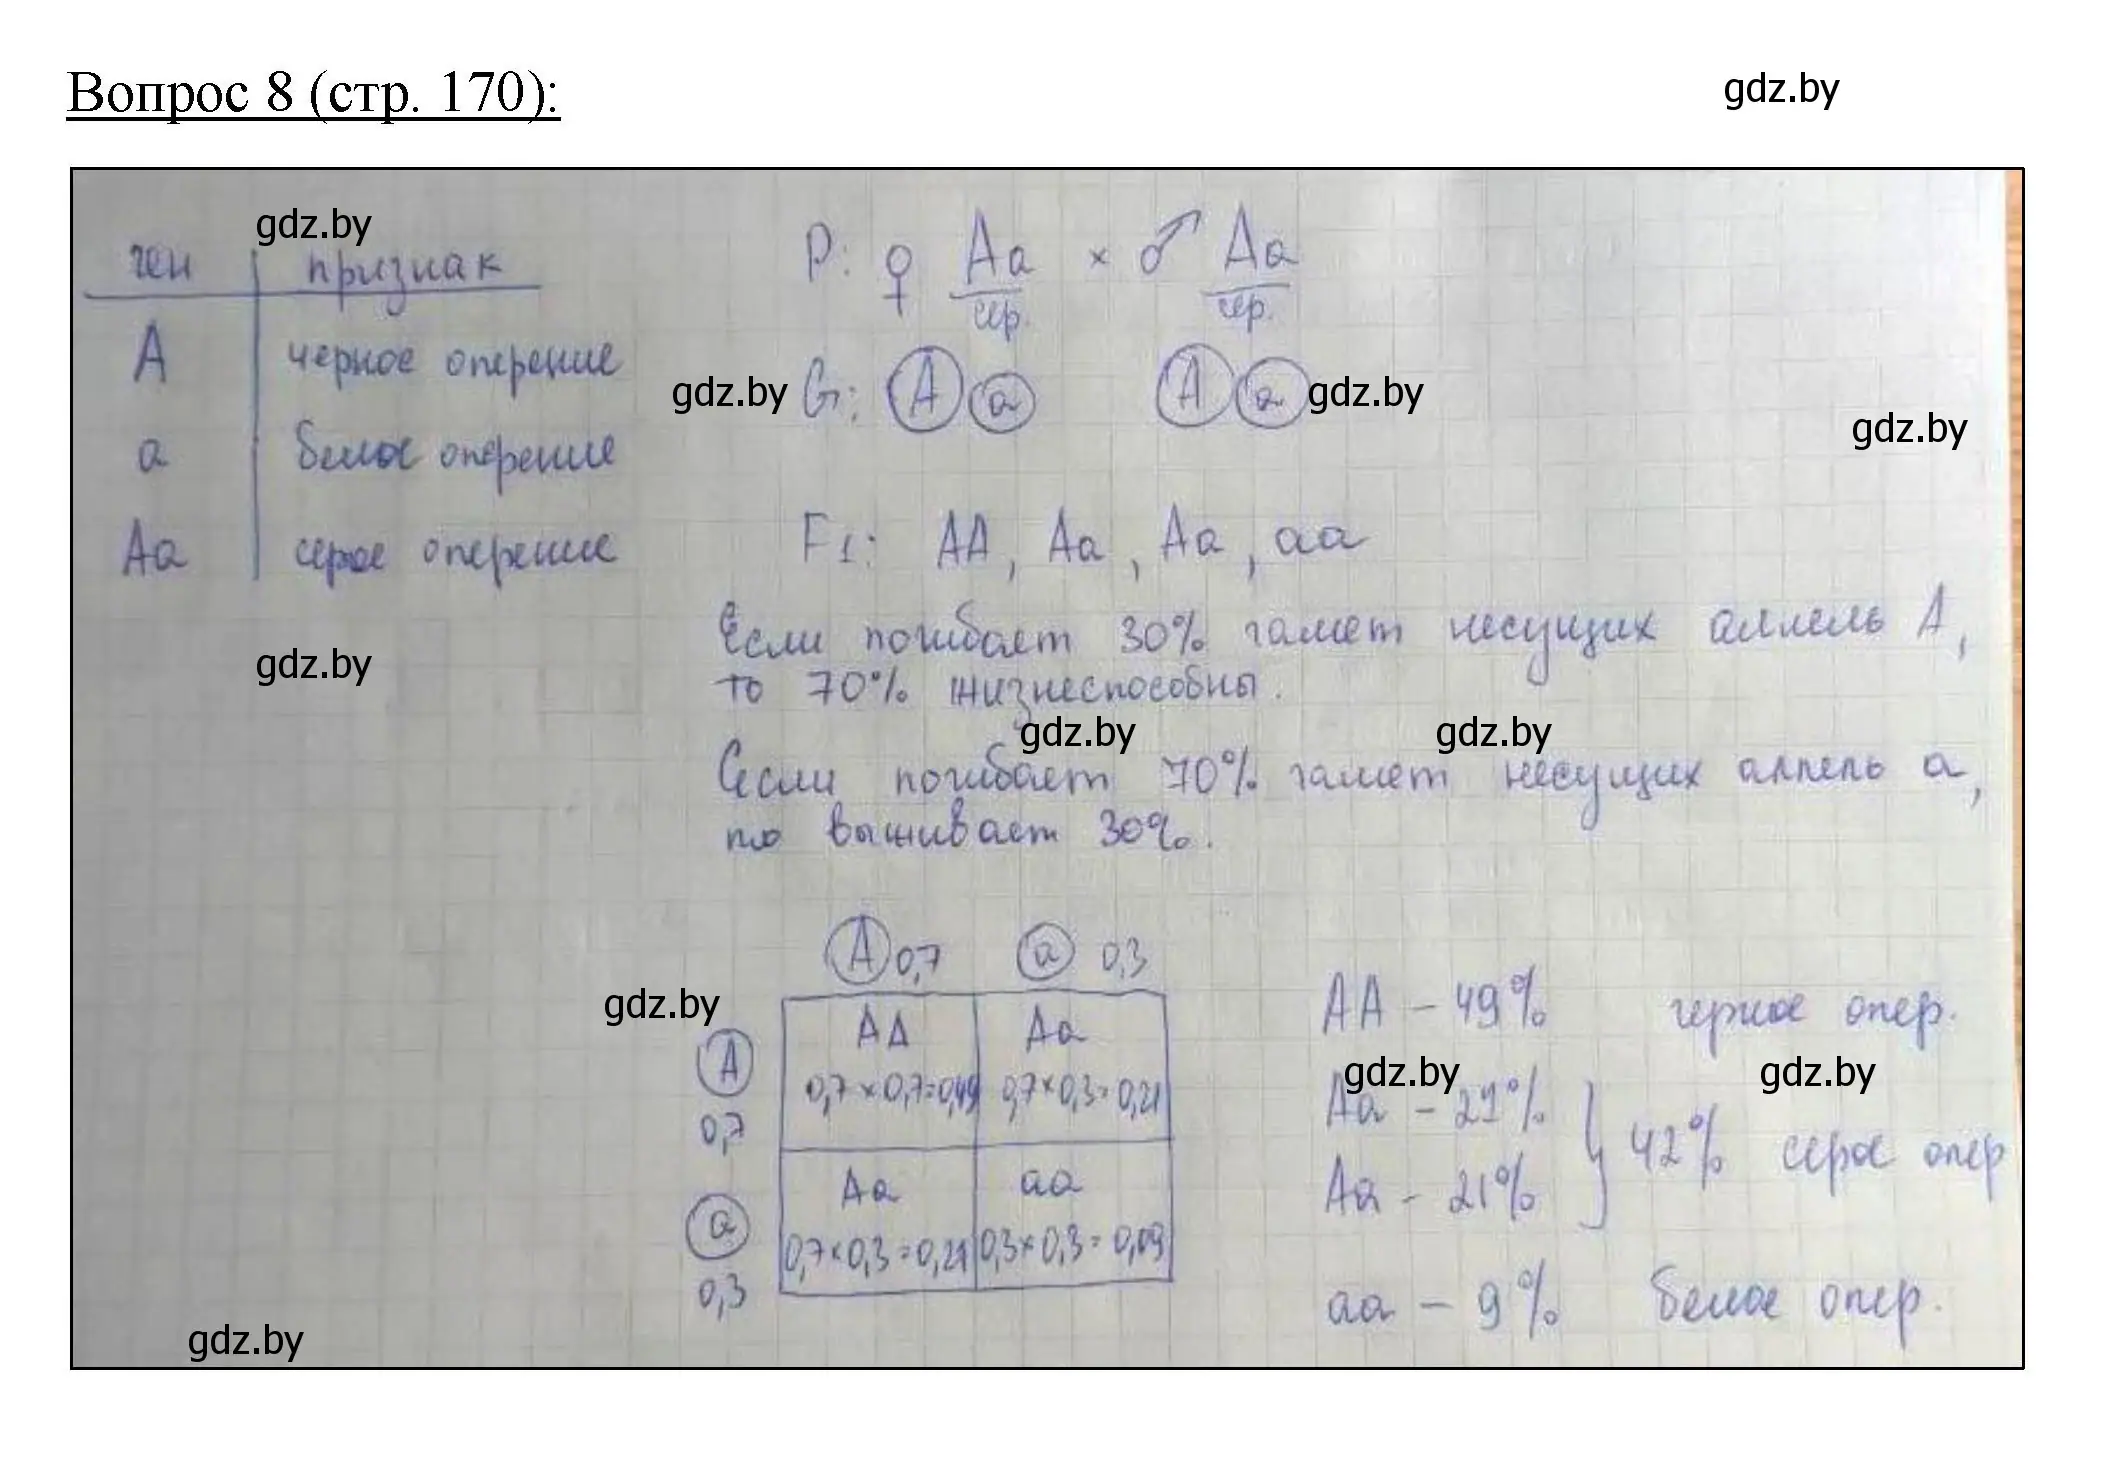 Вопрос 8 (стр. 170):
gdz.by
gdz.by
ген признак
P: ♀ Aa × ♂ Aa
сер. сер.
A черное оперение
gdz.by G: A a A a gdz.by
gdz.by
a белое оперение
Aa серое оперение
F1: AA, Aa, Aa, aa
Если погибает 30% гамет несущих аллель A,
gdz.by
то 70% жизнеспособны.
gdz.by gdz.by
Если погибает 70% гамет несущих аллель a,
то выживает 30%.
A 0,7 a 0,3
gdz.by
AA Aa
A 0,7×0,7=0,49 0,7×0,3=0,21
0,7
Aa aa
a 0,7×0,3=0,21 0,3×0,3=0,09
0,3
AA – 49% черное опер.
gdz.by gdz.by
Aa – 21%
42% серое опер
Aa – 21%
aa – 9% белое опер.
gdz.by